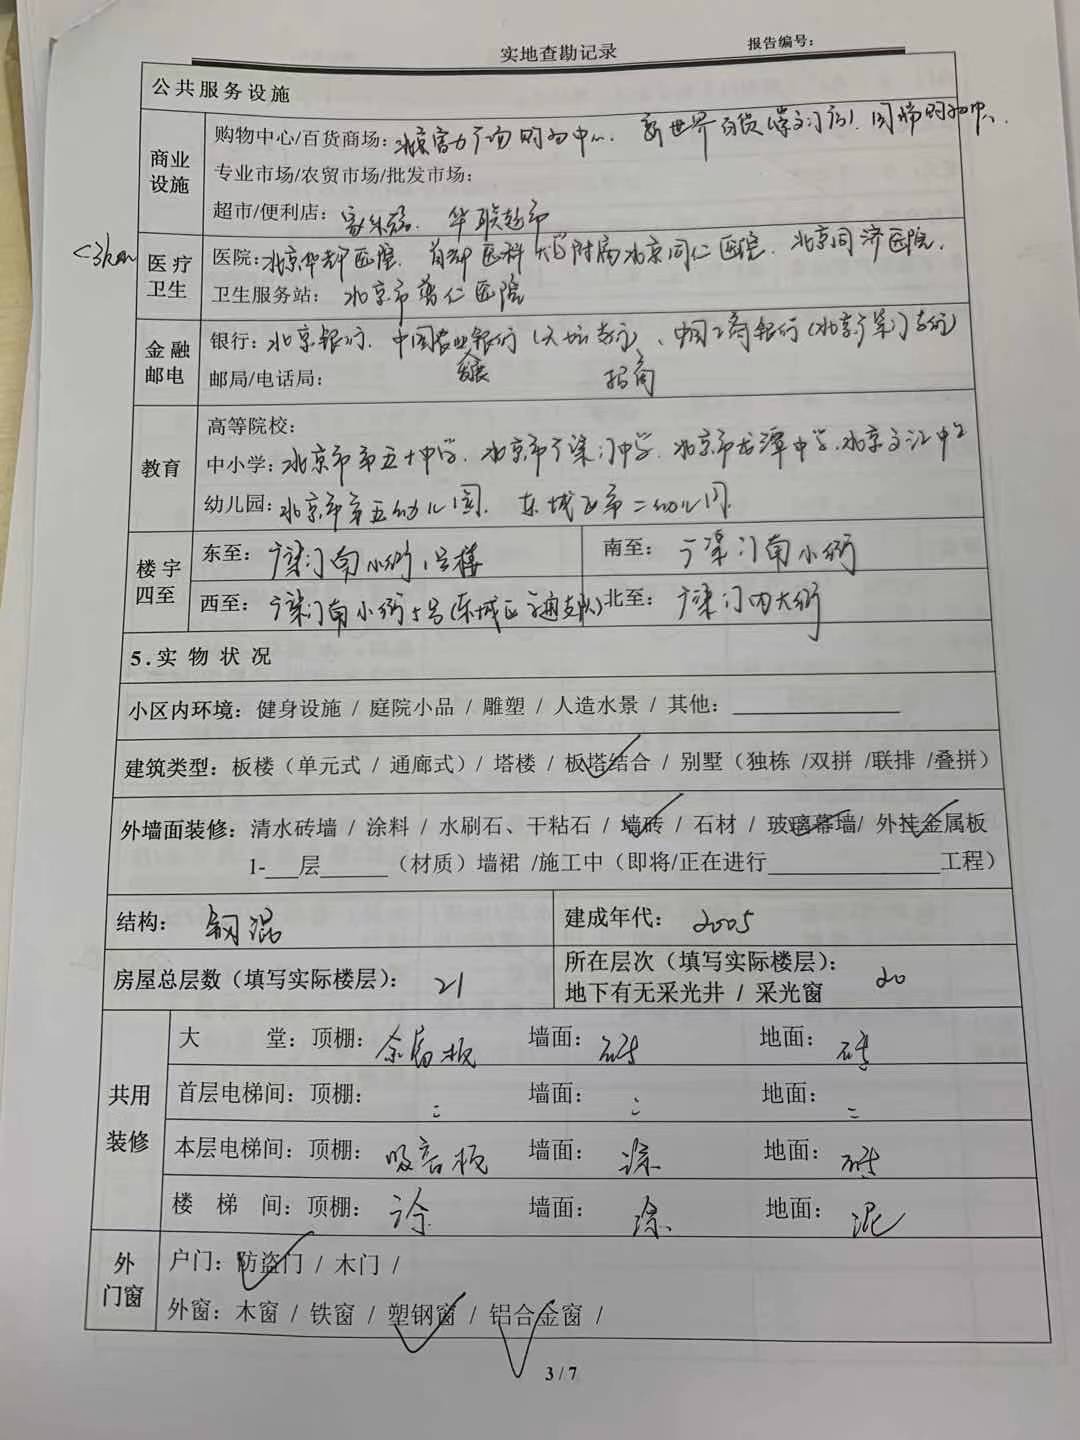 实地查勘记录
报告编号:
公共服务设施
商业设施
购物中心/百货商场: 北京富力广场购物中心、新世界百货(崇文门店)、国瑞购物中心
专业市场/农贸市场/批发市场:
超市/便利店: 家乐福、华联超市
<3km
医疗卫生
医院: 北京华都医院、首都医科大学附属北京同仁医院、北京同济医院、
卫生服务站: 北京市普仁医院
金融邮电
银行: 北京银行、中国农业银行(天坛支行)、中国工商银行(北京广渠门支行)
邮局/电话局: 发展 招商
教育
高等院校:
中小学: 北京市第五十中学、北京市广渠门中学、北京市龙潭中学、北京文汇中学
幼儿园: 北京市第五幼儿园、东城区第二幼儿园
楼宇四至
东至: 广渠门南小街1号楼 南至: 广渠门南小街
西至: 广渠门南小街5号(东城区交通支队) 北至: 广渠门内大街
5.实物状况
小区内环境: 健身设施 / 庭院小品 / 雕塑 / 人造水景 / 其他:
建筑类型: 板楼(单元式 / 通廊式)/ 塔楼 / 板塔结合 / 别墅(独栋 /双拼 /联排 /叠拼)
外墙面装修: 清水砖墙 / 涂料 / 水刷石、干粘石 / 墙砖 / 石材 / 玻璃幕墙/ 外挂金属板
1-___层______(材质)墙裙 /施工中(即将/正在进行_______________工程)
结构: 钢混 建成年代: 2005
房屋总层数(填写实际楼层): 21 所在层次(填写实际楼层): 20
地下有无采光井 / 采光窗
共用装修
大堂: 顶棚: 金属板 墙面: 砖 地面: 砖
首层电梯间: 顶棚: 墙面: 地面:
本层电梯间: 顶棚: 吸音板 墙面: 涂 地面: 砖
楼梯间: 顶棚: 涂 墙面: 涂 地面: 混
外门窗
户门: 防盗门 / 木门 /
外窗: 木窗 / 铁窗 / 塑钢窗 / 铝合金窗 /
3 / 7